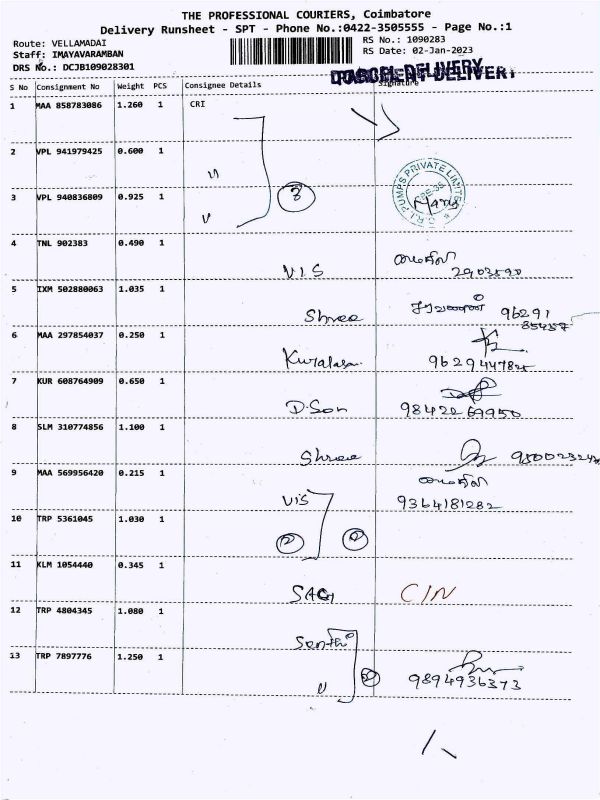 THE PROFESSIONAL COURIERS, Coimbatore
Delivery Runsheet - SPT - Phone No.:0422-3505555 - Page No.:1
Route: VELLAMADAI
RS No.: 1090283
Staff: IMAYAVARAMBAN
RS Date: 02-Jan-2023
DRS No.: DCJB109028301
S No Consignment No Weight PCS Consignee Details Signature
1 MAA 858783086 1.260 1 CRI
2 VPL 941979425 0.600 1 "
3 VPL 940836809 0.925 1 " 3
C.R.I. PUMPS PRIVATE LIMITED
4 TNL 902383 0.490 1 VIS
5 IXM 502880063 1.035 1 Shree சரவணன் 96291
6 MAA 297854037 0.250 1
7 KUR 608764909 0.650 1 D.Son 98422 69950
8 SLM 310774856 1.100 1 Shree
9 MAA 569956420 0.215 1 VIS 9364181282
10 TRP 5361045 1.030 1 2 2
11 KLM 1054440 0.345 1 SAG C/N
12 TRP 4804345 1.080 1
13 TRP 7897776 1.250 1 " 2 9894936373